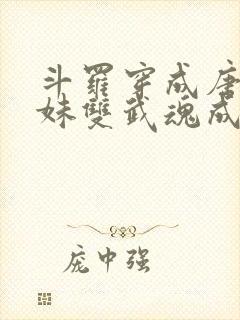 斗羅穿成唐
妹雙武魂成
庞中强